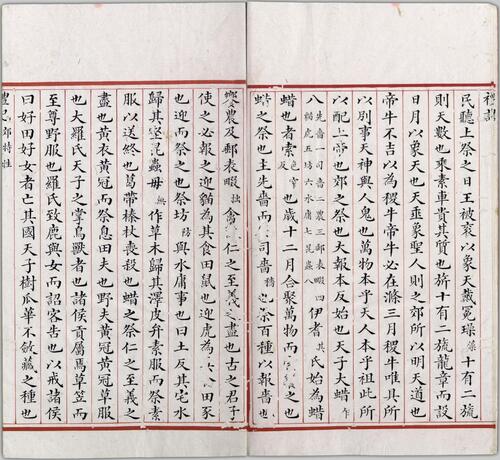 禮記
民聽上祭之日王被衮以象天戴冕璪藻十有二旒
則天數也乘素車貴其質也旂十有二旒龍章而設
日月以象天也天垂象聖人則之郊所以明天道也
帝牛不吉以為稷牛帝牛必在滌三月稷牛唯具所
以別事天神與人鬼也萬物本乎天人本乎祖此所
以配上帝也郊之祭也大報本反始也天子大蜡乍
八先嗇一司嗇二農三郵表畷四貓虎五坊六水庸七昆蟲八伊耆其氏始為蜡
蜡也者索色窄反也歲十二月合聚萬物而
蜡之祭也主先嗇而司嗇穡也祭百種以報嗇也
饗農及郵表畷拙禽仁之至義之盡也古之君子
使之必報之迎貓為其食田鼠也迎虎為田豕
也迎而祭之也祭坊防與水庸事也曰土反其宅水
歸其壑昆蟲毋無作草木歸其澤皮弁素服而祭素
服以送終也葛帶榛杖喪殺也蜡之祭仁之至義之
盡也黃衣黃冠而祭息田夫也野夫黃冠黃冠草服
也大羅氏天子之掌鳥獸者也諸侯貢屬焉草笠而
至尊野服也羅氏致鹿與女而詔客告也以戒諸侯
曰好田好女者亡其國天子樹瓜華不斂藏之種也
禮記郊特牲